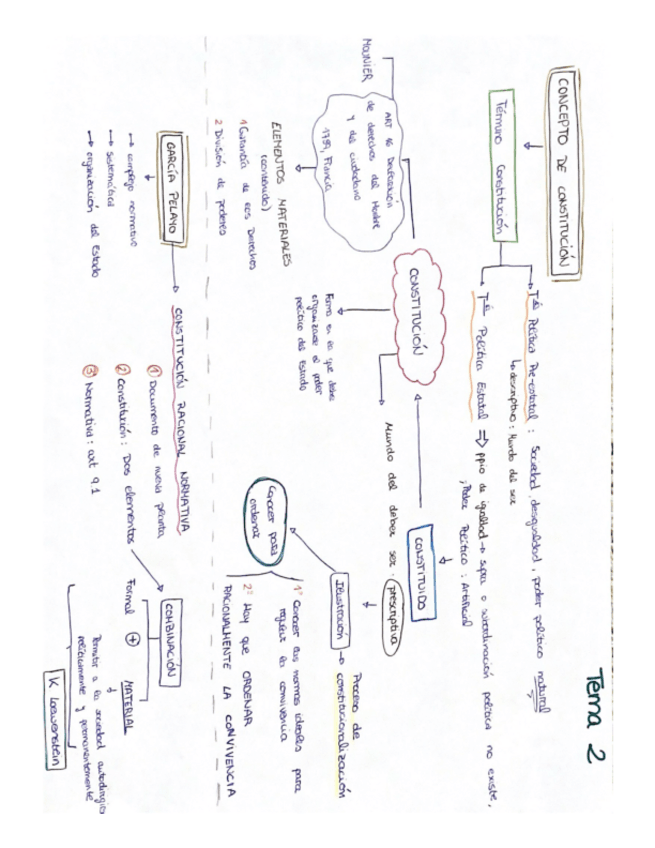 Tema 2
CONCEPTO DE CONSTITUCIÓN
Término Constitución
Tª Política Pre-estatal : Sociedad, desigualdad, poder político natural
↳ descriptivo : Mundo del ser
Tª Política Estatal ⇒ ppio de igualdad → supra o subordinación política no existe,
, Poder Político : Artificial
CONSTITUIDO
CONSTITUCIÓN
Mundo del deber ser. prescriptiva
Forma en la que debe
organizarse el poder
político del estado
MOUNIER
ART 16 Declaración
de derechos del Hombre
y del ciudadano
1789, Francia
ELEMENTOS MATERIALES
(contenido)
1 Garantía de los Derechos
2 División de poderes
Ilustración → Proceso de
constitucionalización
Conocer para
ordenar
1º Conocer las normas ideales para
regular la convivencia
2º Hay que ORDENAR
RACIONALMENTE LA CONVIVENCIA
GARCÍA PELAYO
→ complejo normativo
→ sistemática
→ organización del Estado
CONSTITUCIÓN RACIONAL NORMATIVA
1 Documento de nueva planta
2 Constitución : Dos elementos
3 Normativa : art 9.1
COMBINACIÓN
Formal + MATERIAL
Permitir a la sociedad autodirigirse
pacíficamente y permanentemente
K Loewenstein